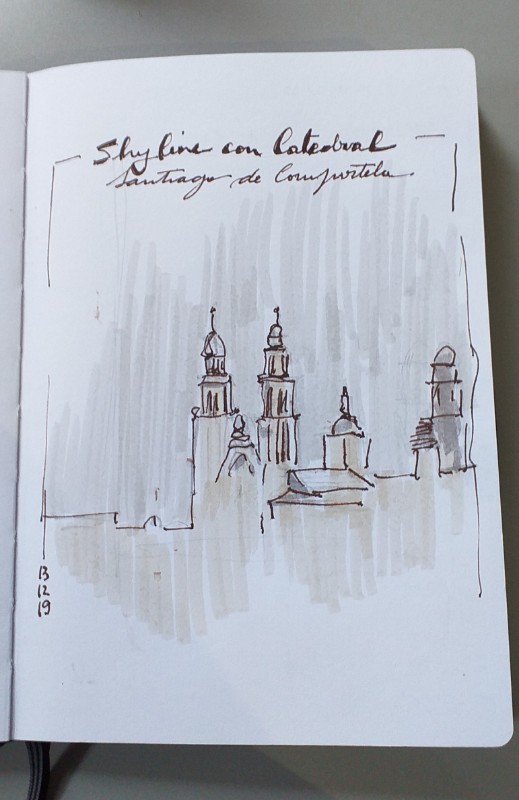 Skyline con Catedral
Santiago de Compostela.
13
12
19